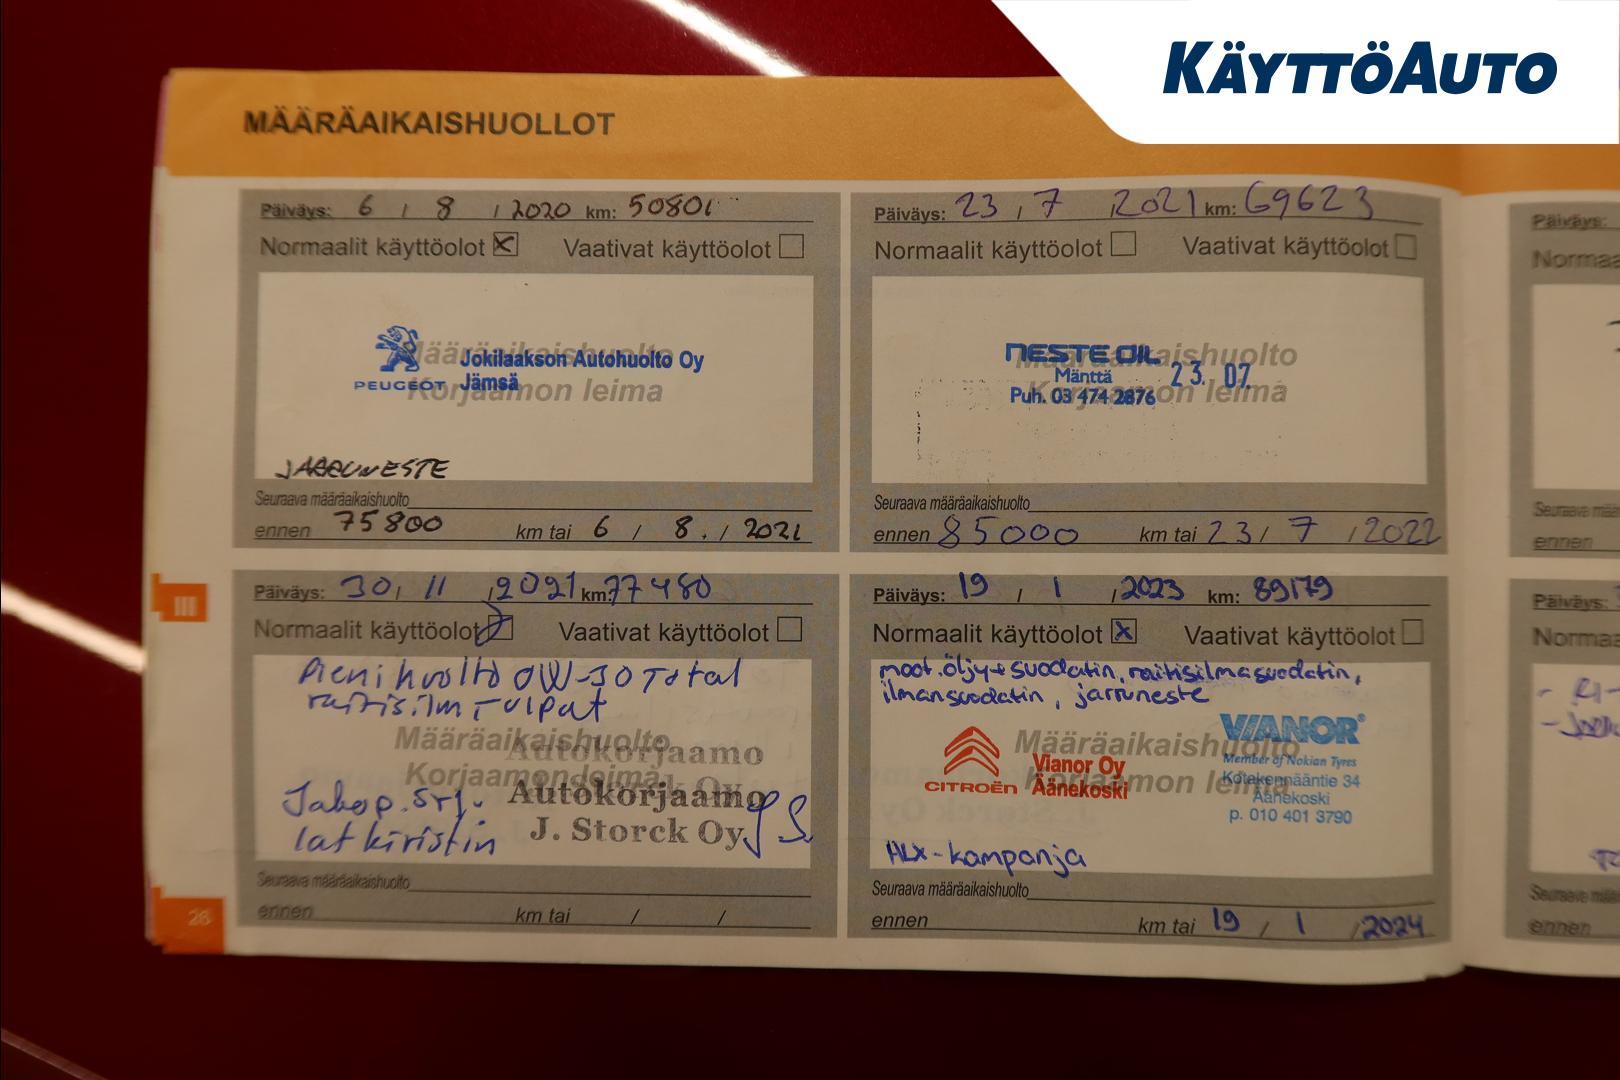 KÄYTTÖAUTO
MÄÄRÄAIKAISHUOLLOT
Päiväys: 6 / 8 / 2020 km: 50801
Normaalit käyttöolot x Vaativat käyttöolot
Määräaikaishuolto
Korjaamon leima
PEUGEOT
Jokilaakson Autohuolto Oy
Jämsä
JARRUNESTE
Seuraava määräaikaishuolto
ennen 75800 km tai 6 / 8. / 2021
Päiväys: 23 / 7 / 2021 km: 69623
Normaalit käyttöolot Vaativat käyttöolot
Määräaikaishuolto
Korjaamon leima
NESTE OIL
Mänttä 23. 07.
Puh. 03 474 2876
Seuraava määräaikaishuolto
ennen 85000 km tai 23 / 7 / 2022
III
Päiväys: 30 / 11 / 2021 km: 77480
Normaalit käyttöolot Vaativat käyttöolot
Pieni huolto 0W-30 Total
raitisilm tulpat
Määräaikaishuolto
Korjaamon leima
Autokorjaamo
Autokorjaamo
J. Storck Oy
JS
Jakop. srj.
lat kiristin
Seuraava määräaikaishuolto
ennen km tai / /
Päiväys: 19 / 1 / 2023 km: 89179
Normaalit käyttöolot x Vaativat käyttöolot
moot.öljy+suodatin, raitisilmasuodatin,
ilmansuodatin, jarruneste
Määräaikaishuolto
Korjaamon leima
CITROËN
Vianor Oy
Äänekoski
VIANOR®
Member of Nokian Tyres
Kotakennääntie 34
Äänekoski
p. 010 401 3790
HLX-kampanja
Seuraava määräaikaishuolto
ennen km tai 19 / 1 / 2024
26
Päiväys:
ennen
Päiväys:
ennen